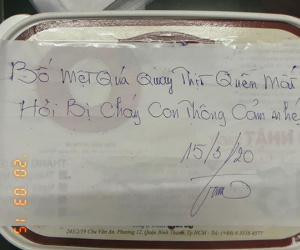 Bố Mệt Quá Quay Thịt Quên Mất
Hơi Bị Cháy Con Thông Cảm nhé
15/3/20
243/2/19 Chu Văn An, Phường 12, Quận Bình Thạnh, Tp.HCM - Tel:
20 03 15